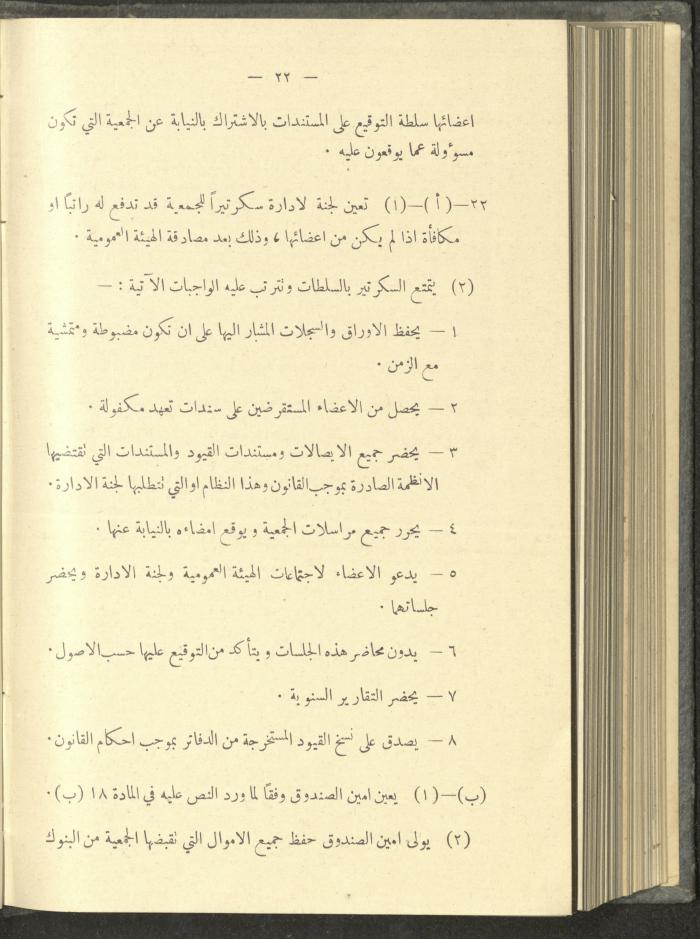 — ٢٢ —
اعضائها سلطة التوقيع على المستندات بالاشتراك بالنيابة عن الجمعية التي تكون
مسوٴولة عما يوقعون عليه ٠
٢٢—(أ)—(١) تعين لجنة لادارة سكرتيراً للجمعية قد تدفع له راتبًا او
مكافأة اذا لم يكن من اعضائها ، وذلك بعد مصادقة الهيئة العمومية ٠
(٢) يتمتع السكرتير بالسلطات وتترتب عليه الواجبات الآتية : —
١ — يحفظ الاوراق والسجلات المشار اليها على ان تكون مضبوطة ومتمشية
مع الزمن ٠
٢ — يحصل من الاعضاء المستقرضين على سندات تعهد مكفولة ٠
٣ — يحضر جميع الايصالات ومستندات القيود والمستندات التي تقتضيها
الانظمة الصادرة بموجب القانون وهذا النظام او التي تتطلبها لجنة الادارة ٠
٤ — يحرر جميع مراسلات الجمعية ويوقع امضاءه بالنيابة عنها ٠
٥ — يدعو الاعضاء لاجتماعات الهيئة العمومية ولجنة الادارة ويحضر
جلساتهما ٠
٦ — يدون محاضر هذه الجلسات ويتأكد من التوقيع عليها حسب الاصول ٠
٧ — يحضر التقارير السنوية ٠
٨ — يصدق على نسخ القيود المستخرجة من الدفاتر بموجب احكام القانون ٠
(ب)—(١) يعين امين الصندوق وفقًا لما ورد النص عليه في المادة ١٨ (ب) ٠
(٢) يولى امين الصندوق حفظ جميع الاموال التي تقبضها الجمعية من البنوك